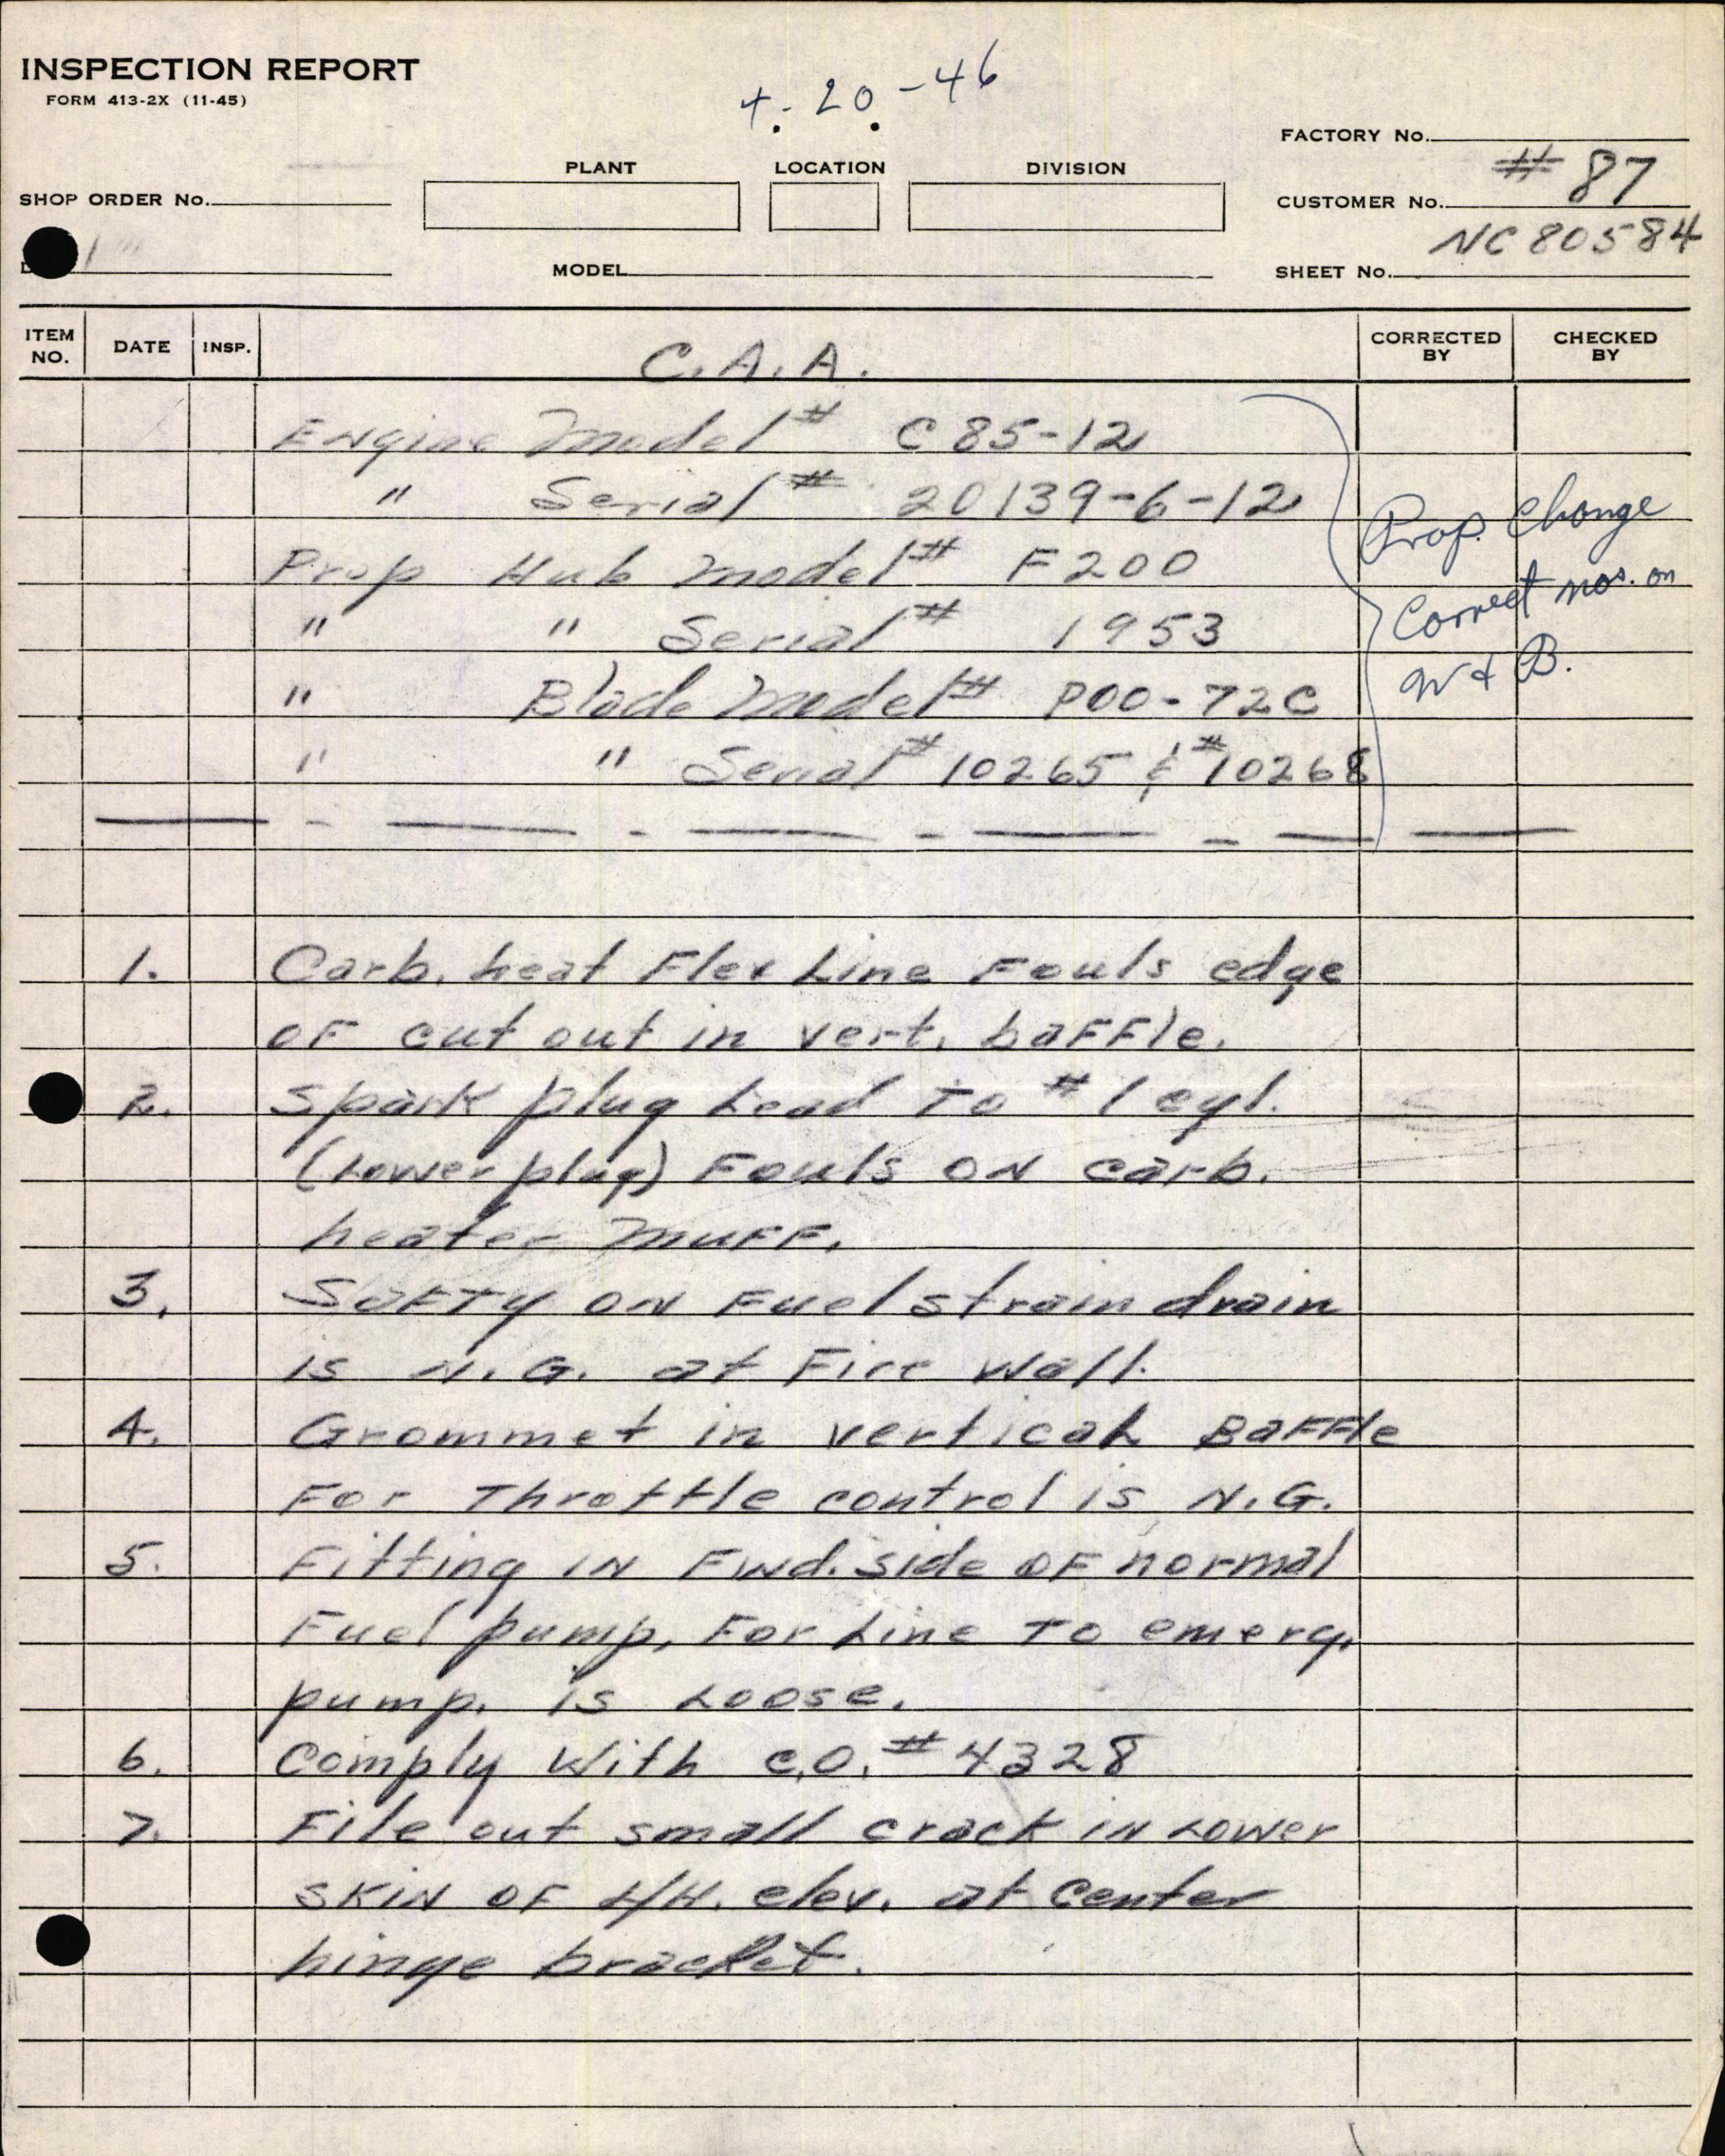 INSPECTION REPORT
FORM 413-2X (11-45)
4-20-46
FACTORY No.
PLANT LOCATION DIVISION
# 87
SHOP ORDER No.
CUSTOMER No.
NC 80584
MODEL
SHEET No.
ITEM NO. DATE INSP. C.A.A. CORRECTED BY CHECKED BY
Engine Model # C85-12
" Serial # 20139-6-12
Prop Hub Model # F200
" " Serial # 1953
" Blade Model # P00-72C
" " Serial # 10265 & #10268
Prop. Change
Correct nos. on
W & B.
1. Carb. heat Flex Line Fouls edge
OF cut out in vert. baFFle.
2. Spark plug Lead To #1 cyl.
(Lower plug) Fouls ON carb.
heater MUFF.
3. SaFTy ON Fuel strain drain
is N.G. at Fire Wall.
4. Grommet in vertical BaFFle
For Throttle control is N.G.
5. Fitting IN Fwd. side OF normal
Fuel pump, For Line To emerg.
pump. is Loose.
6. Comply With C.O. #4328
7. File out small crack IN Lower
SKIN OF L/H. elev. at Center
hinge bracket.